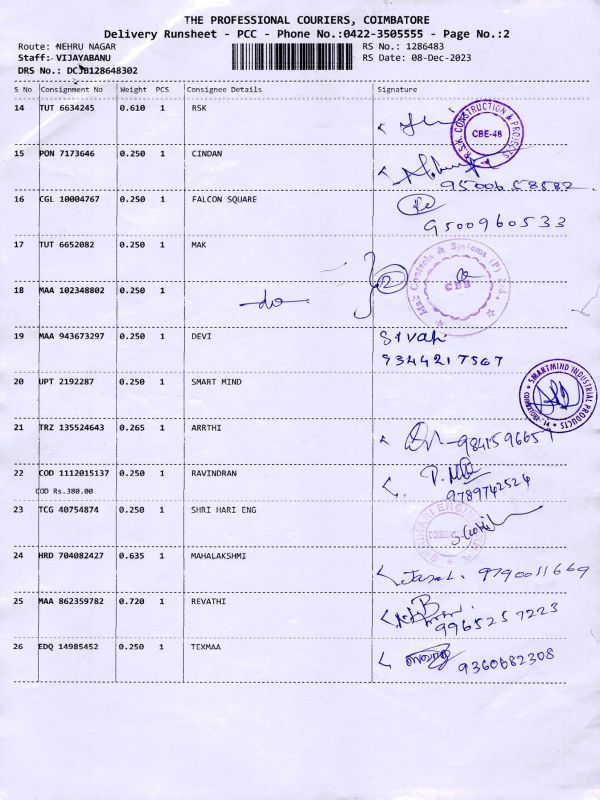 THE PROFESSIONAL COURIERS, COIMBATORE
Delivery Runsheet - PCC - Phone No.:0422-3505555 - Page No.:2
Route: NEHRU NAGAR RS No.: 1286483
Staff: VIJAYABANU RS Date: 08-Dec-2023
DRS No.: DCJB128648302
S No Consignment No Weight PCS Consignee Details Signature
14 TUT 6634245 0.610 1 RSK
R.S.K. CONSTRUCTION & PROJECTS
CBE-48
15 PON 7173646 0.250 1 CINDAN
9500658582
16 CGL 10004767 0.250 1 FALCON SQUARE
9500960533
17 TUT 6652082 0.250 1 MAK
Controls & Systems (P) Ltd.
CBE
18 MAA 102348802 0.250 1
do
19 MAA 943673297 0.250 1 DEVI
9344217567
20 UPT 2192287 0.250 1 SMART MIND
SMARTMIND INDUSTRIAL PRODUCTS
21 TRZ 135524643 0.265 1 ARRTHI
22 COD 1112015137 0.250 1 RAVINDRAN
COD Rs.380.00
9789742524
23 TCG 40754874 0.250 1 SHRI HARI ENG
24 HRD 704082427 0.635 1 MAHALAKSHMI
9790011669
25 MAA 862359782 0.720 1 REVATHI
9965257223
26 EDQ 14985452 0.250 1 TEXMAA
9360682308